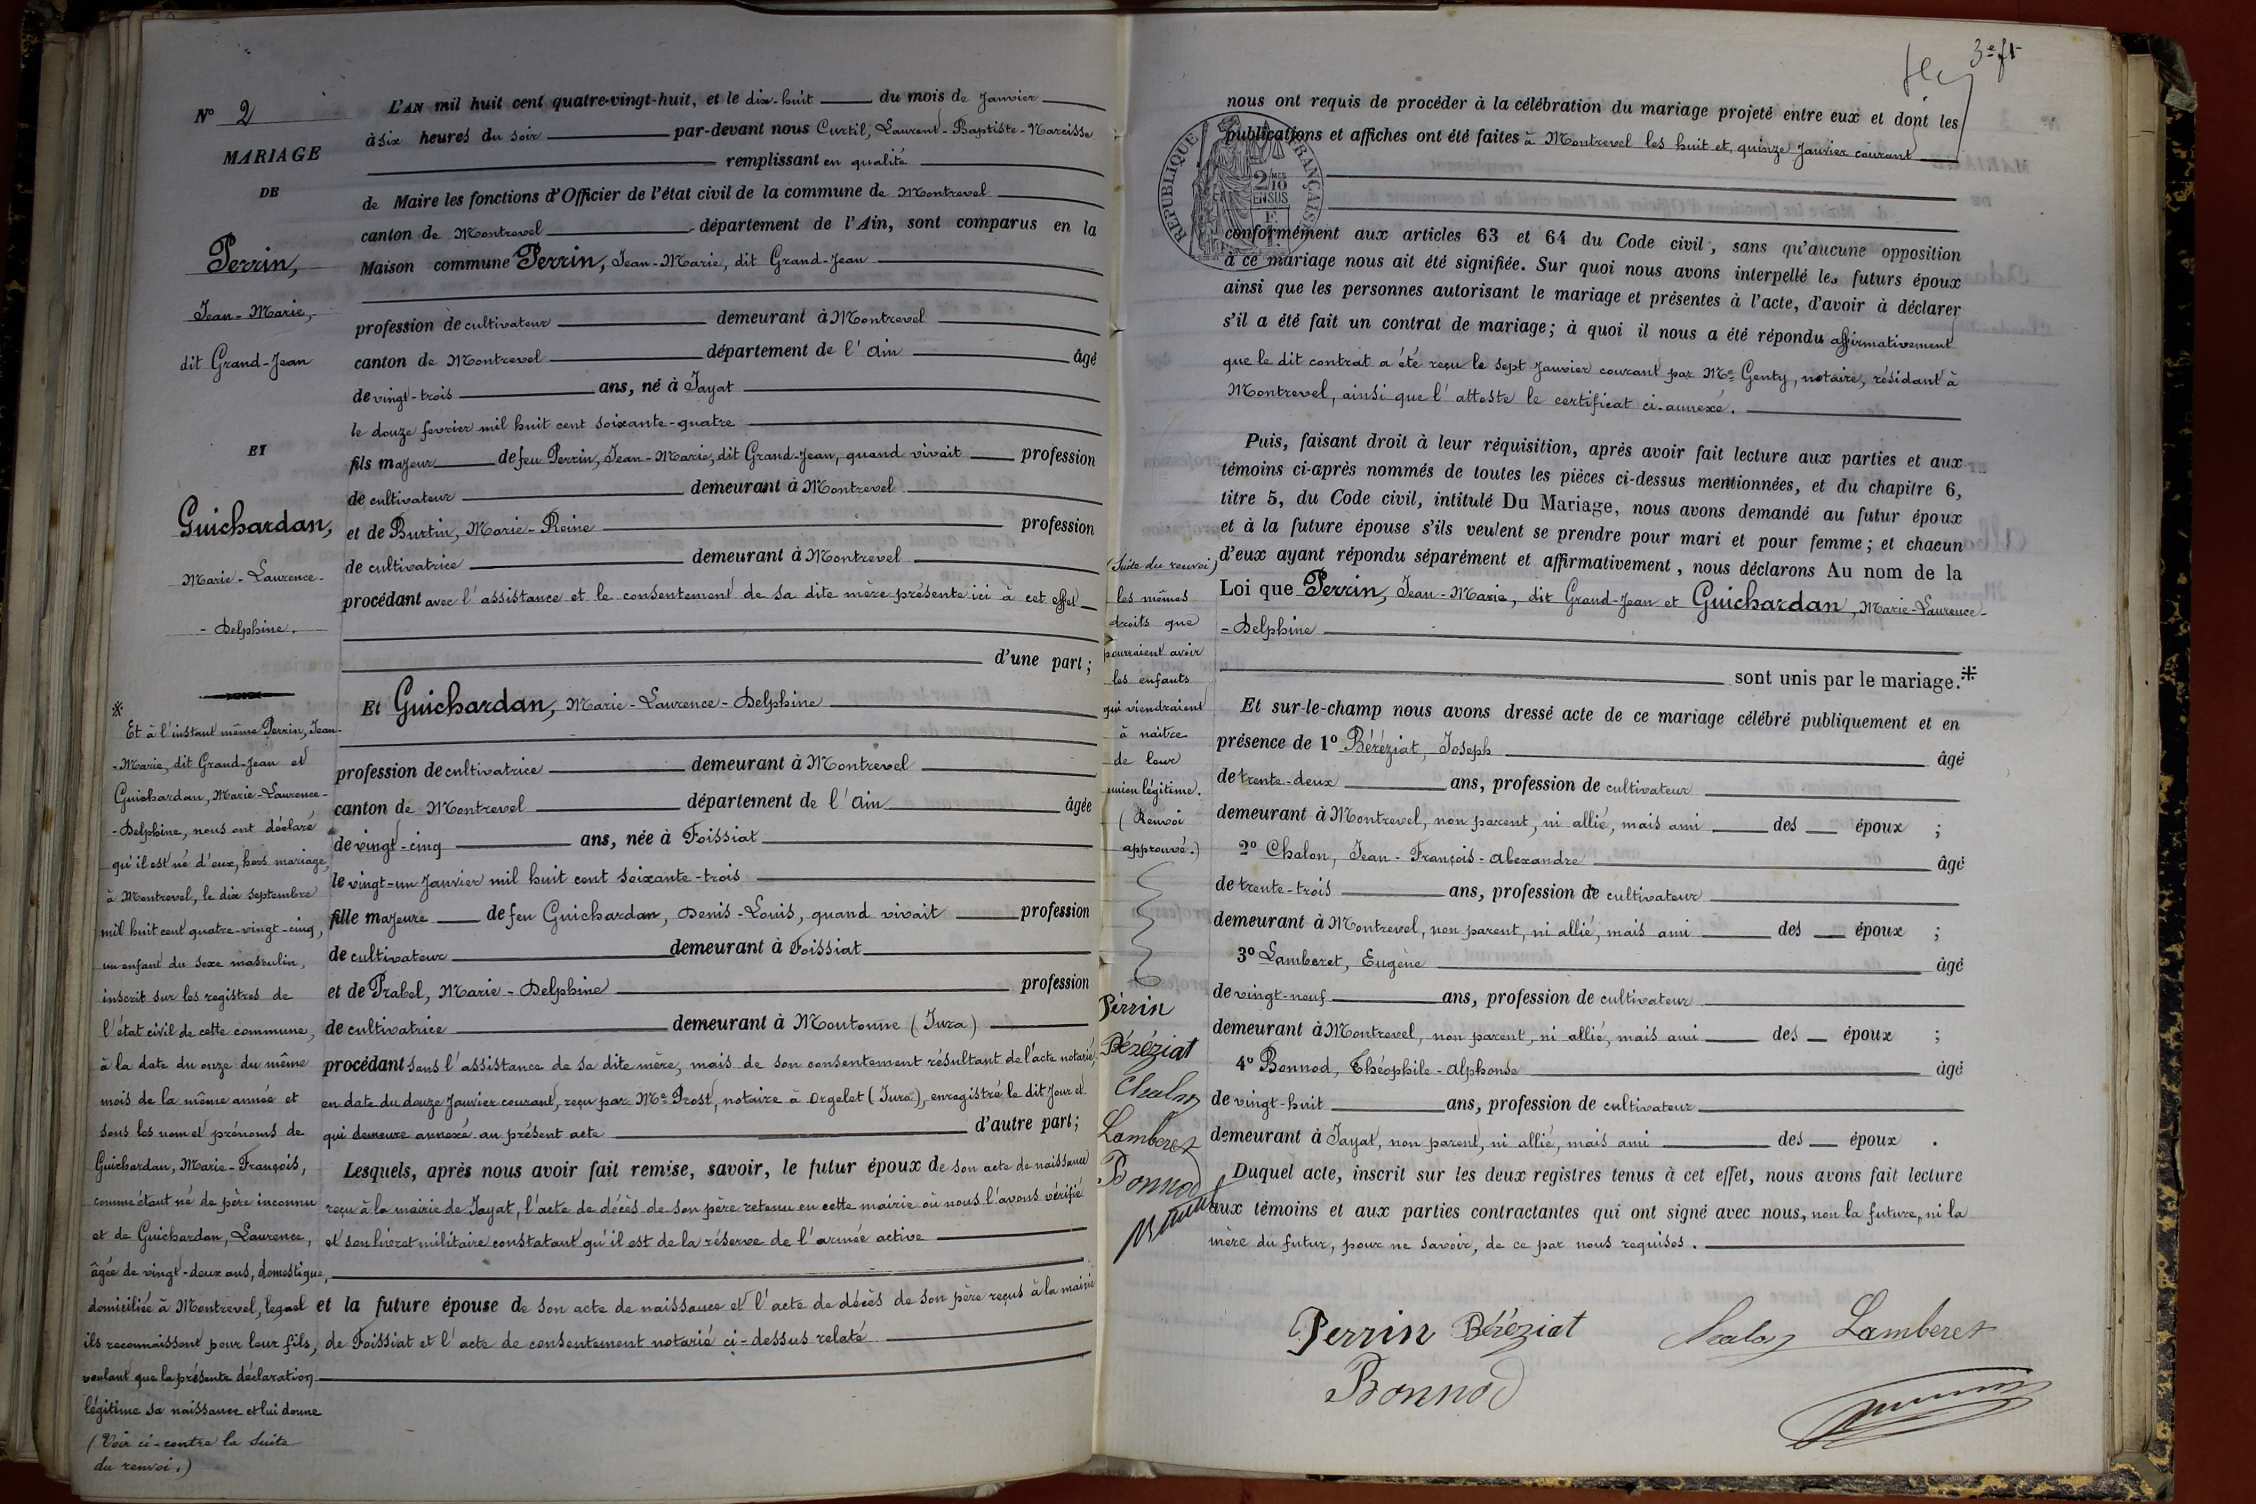 N° 2
MARIAGE
DE
Perrin,
Jean-Marie,
dit Grand-Jean
ET
Guichardan,
Marie-Laurence-
-Delphine.
L'AN mil huit cent quatre-vingt-huit, et le dix-huit du mois de Janvier
à six heures du soir par-devant nous Curtil, Laurent-Baptiste-Narcisse
remplissant en qualité
de Maire les fonctions d'Officier de l'état civil de la commune de Montrevel
canton de Montrevel département de l'Ain, sont comparus en la
Maison commune Perrin, Jean-Marie, dit Grand-Jean
profession de cultivateur demeurant à Montrevel
canton de Montrevel département de l'Ain âgé
de vingt-trois ans, né à Jayat
le douze fevrier mil huit cent soixante-quatre
fils majeur de feu Perrin, Jean-Marie, dit Grand-Jean, quand vivait profession
de cultivateur demeurant à Montrevel
et de Burtin, Marie-Reine profession
de cultivatrice demeurant à Montrevel
procédant avec l'assistance et le consentement de sa dite mère présente ici à cet effet
d'une part;
Et Guichardan, Marie-Laurence-Delphine
profession de cultivatrice demeurant à Montrevel
canton de Montrevel département de l'Ain âgée
de vingt-cinq ans, née à Foissiat
le vingt-un Janvier mil huit cent soixante-trois
fille majeure de feu Guichardan, Denis-Louis, quand vivait profession
de cultivateur demeurant à Foissiat
et de Prabel, Marie-Delphine profession
de cultivatrice demeurant à Moutonne (Jura)
procédant sans l'assistance de sa dite mère, mais de son consentement résultant de l'acte notarié,
en date du douze Janvier courant, reçu par Me Prost, notaire à Orgelet (Jura), enregistré le dit jour et
qui demeure annexé au présent acte d'autre part;
Lesquels, après nous avoir fait remise, savoir, le futur époux de son acte de naissance
reçu à la mairie de Jayat, l'acte de décès de son père retenu en cette mairie où nous l'avons vérifié
et son livret militaire constatant qu'il est de la réserve de l'armée active
et la future épouse de son acte de naissance et l'acte de décès de son père reçus à la mairie
de Foissiat et l'acte de consentement notarié ci-dessus relaté
※
Et à l'instant même Perrin, Jean-
-Marie, dit Grand-Jean et
Guichardan, Marie-Laurence-
-Delphine, nous ont déclaré
qu'il est né d'eux, hors mariage,
à Montrevel, le dix septembre
mil huit cent quatre-vingt-cinq,
un enfant du sexe masculin,
inscrit sur les registres de
l'état civil de cette commune,
à la date du onze du même
mois de la même année et
sous les nom et prénoms de
Guichardan, Marie-François,
comme étant né de père inconnu
et de Guichardan, Laurence,
âgée de vingt-deux ans, domestique,
domiciliée à Montrevel, lequel
ils reconnaissent pour leur fils,
voulant que la présente déclaration
légitime sa naissance et lui donne
(Voir ci-contre la suite
du renvoi.)
(Suite du renvoi)
les mêmes
droits que
pourraient avoir
les enfants
qui viendraient
à naître
de leur
union légitime.
(Renvoi
approuvé.)
Perrin
Béréziat
Chalon
Lamberet
Bonnod
3e ft
nous ont requis de procéder à la célébration du mariage projeté entre eux et dont les
publications et affiches ont été faites à Montrevel les huit et quinze Janvier courant
RÉPUBLIQUE FRANÇAISE
2/10
EN SUS
conformément aux articles 63 et 64 du Code civil, sans qu'aucune opposition
à ce mariage nous ait été signifiée. Sur quoi nous avons interpellé les futurs époux
ainsi que les personnes autorisant le mariage et présentes à l'acte, d'avoir à déclarer
s'il a été fait un contrat de mariage; à quoi il nous a été répondu affirmativement
que le dit contrat a été reçu le sept Janvier courant par Me Genty, notaire, résidant à
Montrevel, ainsi que l'atteste le certificat ci-annexé.
Puis, faisant droit à leur réquisition, après avoir fait lecture aux parties et aux
témoins ci-après nommés de toutes les pièces ci-dessus mentionnées, et du chapitre 6,
titre 5, du Code civil, intitulé Du Mariage, nous avons demandé au futur époux
et à la future épouse s'ils veulent se prendre pour mari et pour femme; et chacun
d'eux ayant répondu séparément et affirmativement, nous déclarons Au nom de la
Loi que Perrin, Jean-Marie, dit Grand-Jean et Guichardan, Marie-Laurence-
-Delphine
sont unis par le mariage.※
Et sur-le-champ nous avons dressé acte de ce mariage célébré publiquement et en
présence de 1° Béréziat, Joseph âgé
de trente-deux ans, profession de cultivateur
demeurant à Montrevel, non parent, ni allié, mais ami des époux ;
2° Chalon, Jean-François-Alexandre âgé
de trente-trois ans, profession de cultivateur
demeurant à Montrevel, non parent, ni allié, mais ami des époux ;
3° Lamberet, Eugène âgé
de vingt-neuf ans, profession de cultivateur
demeurant à Montrevel, non parent, ni allié, mais ami des époux ;
4° Bonnod, Théophile-Alphonse âgé
de vingt-huit ans, profession de cultivateur
demeurant à Jayat, non parent, ni allié, mais ami des époux .
Duquel acte, inscrit sur les deux registres tenus à cet effet, nous avons fait lecture
aux témoins et aux parties contractantes qui ont signé avec nous, non la future, ni la
mère du futur, pour ne savoir, de ce par nous requises.
Perrin Béréziat Chalon Lamberet
Bonnod